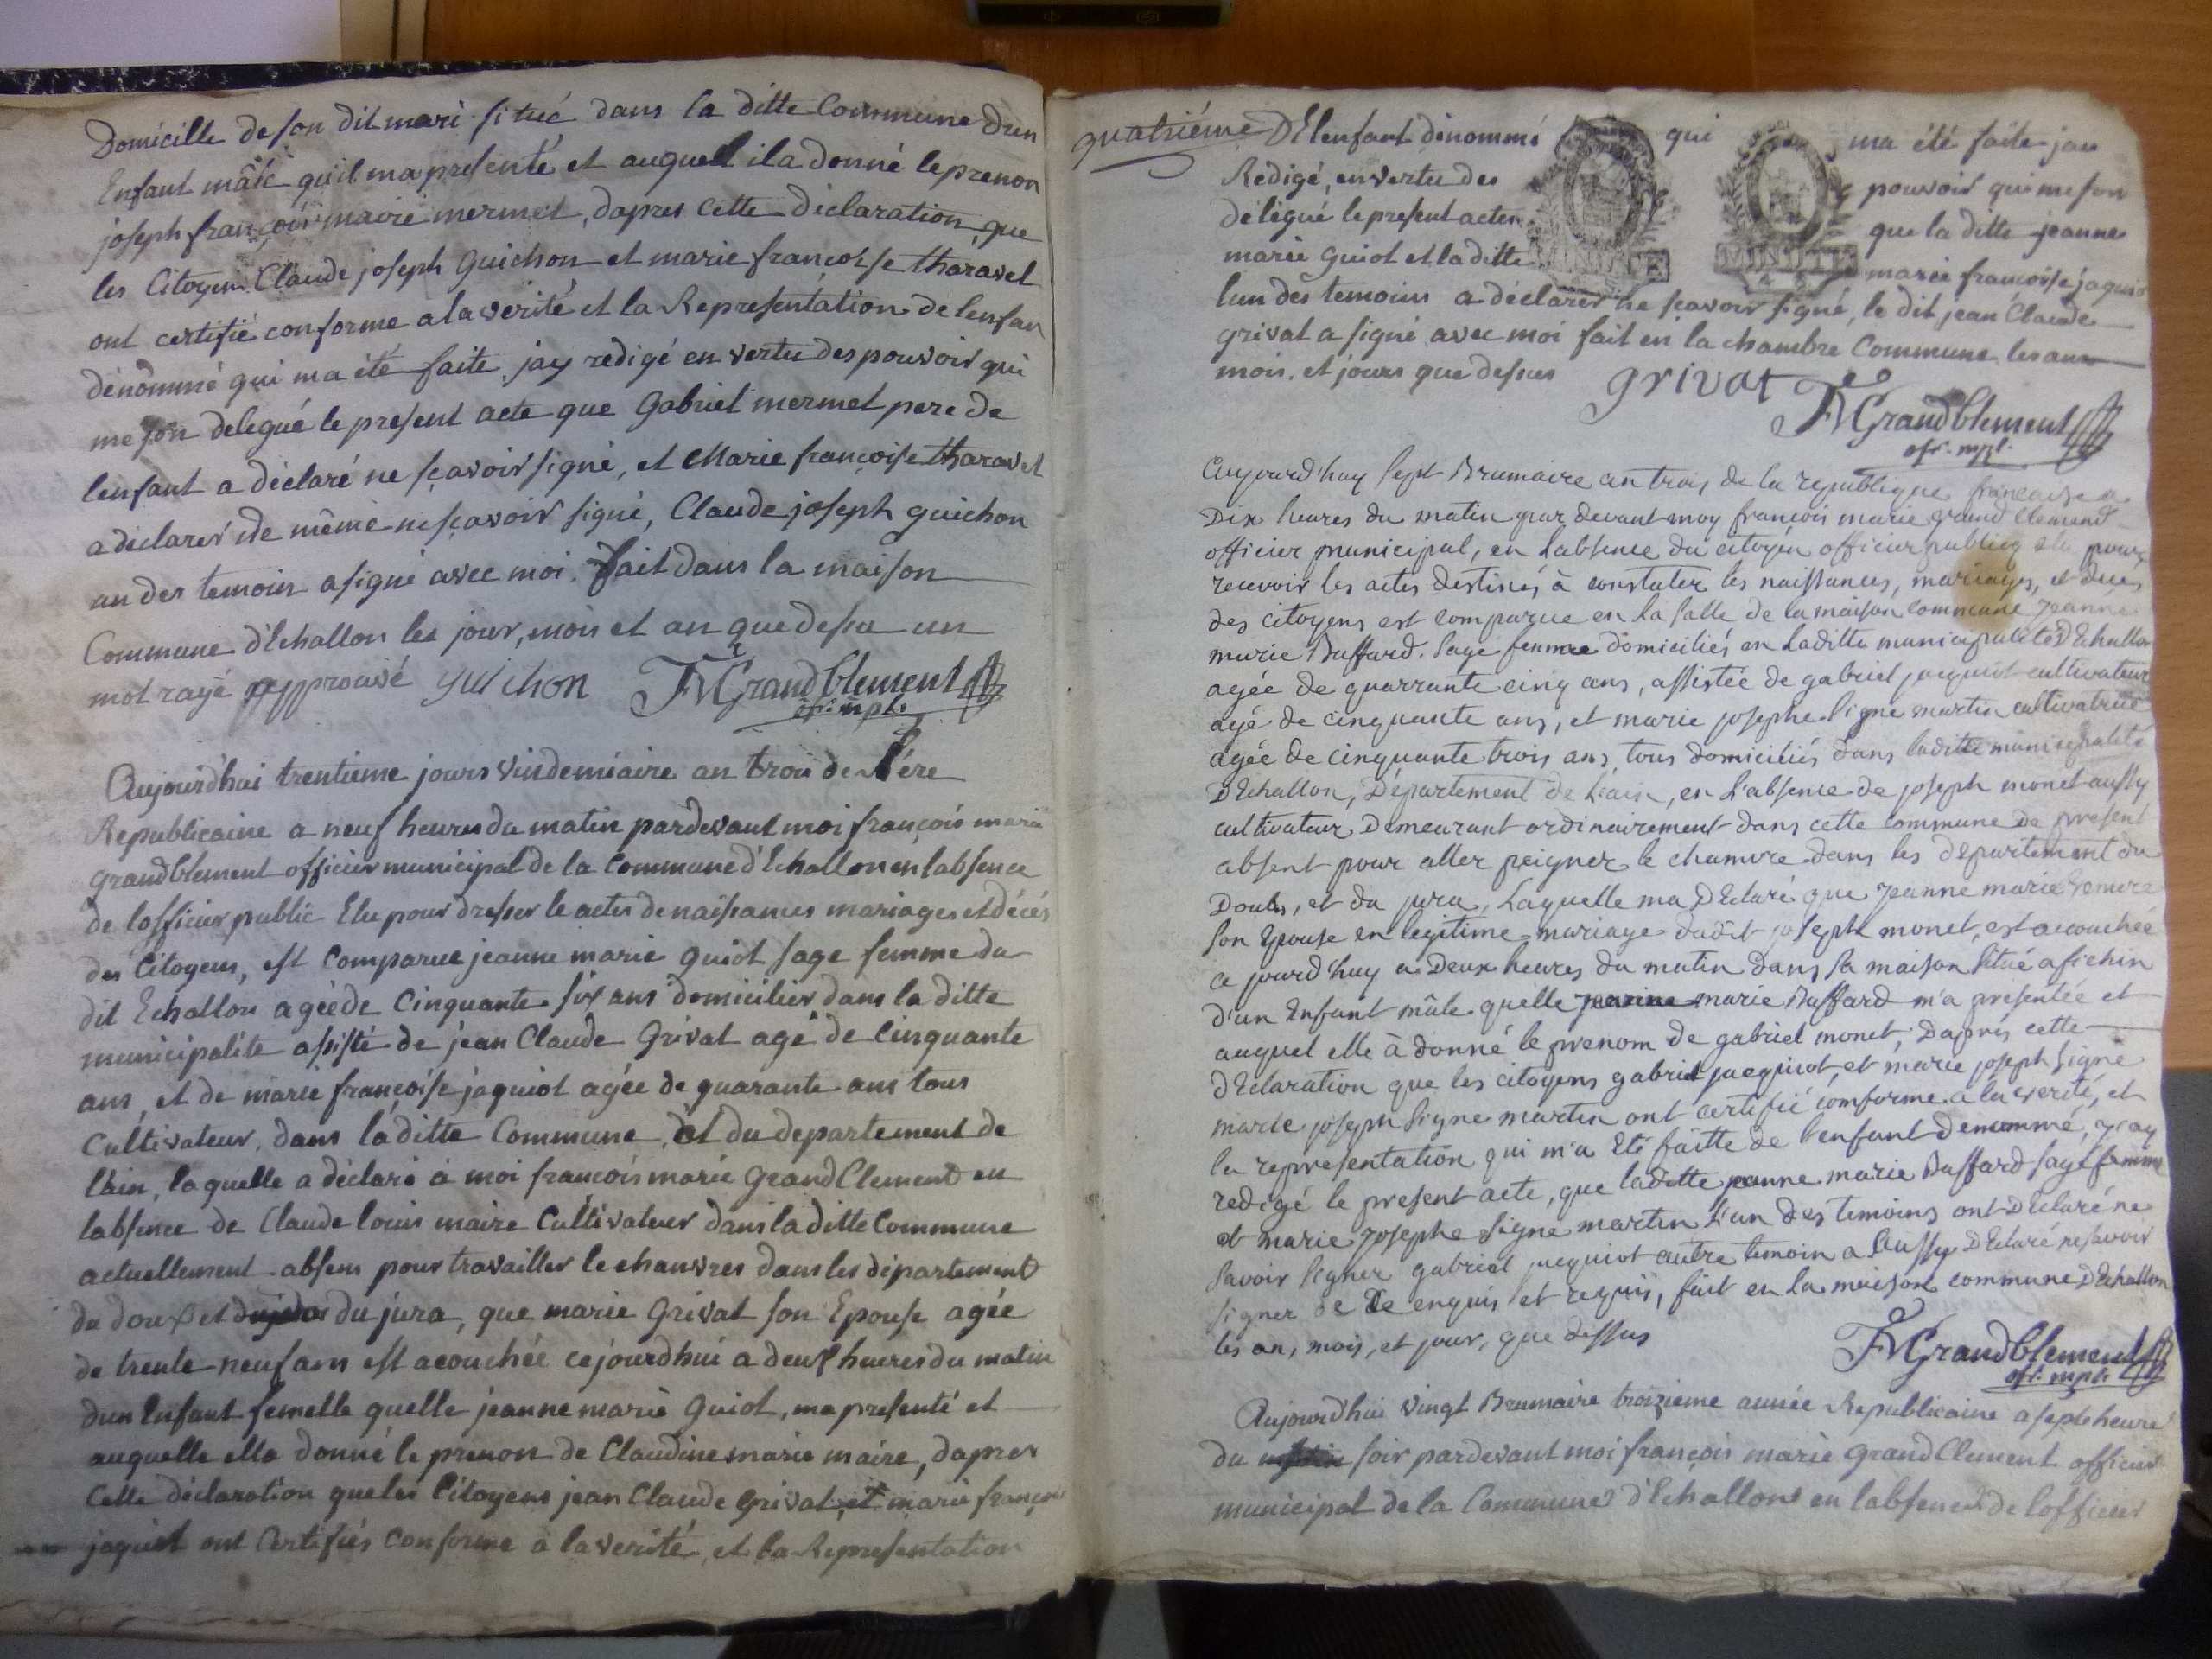 Domicille de son dit mari situé dans la ditte Commune dun
Enfant mâle qu'il ma presenté et auquell il a donné le prenon
joseph françois marie mermet, dapres cette declaration, que
les Citoyens Claude joseph Guichon et marie françoise tharavel
ont certifié conforme a la verité et la Representation de lenfan
dénommé qui ma été faite, jay redigé en vertu des pouvoir qui
me son delegué le present acte que Gabriel mermet pere de
lenfant a déclaré ne sçavoir signé, et Marie françoise tharavel
a declarer de même ne sçavoir signé, Claude joseph guichon
un des temoin a signé avec moi. fait dans la maison
Commune d'Echallon les jour, mois et an que dessu un
mot rayé approuvé guichon FMGrandblement
ofr. mpl.
Aujourdhui trentieme jours vindemiaire an trois de L'ére
Republicaine a neuf heures du matin pardevant moi françois marie
grandblement officier municipal de la Commune d'Echallon en labsence
de lofficier public Elu pour dresser le actes de naissances mariages et décés
des Citoyens, est Comparue jeanne marie guiot sage femme du
dit Echallon agée de Cinquante six ans domicilier dans la ditte
municipalite assisté de jean Claude Grivat agé de Cinquante
ans, et de marie françoise jaquiot agée de quarante ans tous
Cultivateur, dans la ditte Commune, et du departement de
l'ain, la quelle a déclaré à moi françois marie Grand Clement en
labsence de Claude louis maire Cultivateur dans la ditte Commune
actuellement absens pour travailler le chanvres dans les département
du doux et du jura, que marie Grivat son Epouse agée
de trente neuf ans est acouchée cejourdhui a deux heures du matin
dun Enfant femelle quelle jeanne marie Guiot, ma presenté et
auquelle ella donné le prenon de Claudine marie maire, dapres
Cette déclaration que les Citoyens jean Claude Grivat, et marie françois
jaquiot ont Certifiés Conforme à la verité, et la Representation
quatriéme DE lenfant dénommé qui ma été faite jau
Redigé, en vertu des pouvoir qui me son
délégué le present acte que la ditte jeanne
marie Guiot et la ditte marie françoise jaquio
lun des temoins a déclarer ne sçavoir signé, le dit jean Claude
grivat a signé avec moi fait en la chambre Commune les an
mois, et jours que dessus grivat FMGrandblement
ofr. mpl.
Aujourd'huy sept Brumaire an trois de la republique française a
Dix heures du matin par devant moy françois marie grand Clement
officier municipal, en L'absence du citoyen officier public elu pour
recevoir les actes destinés à constater les naissances, mariages, et deces
des citoyens est comparue en la salle de la maison commune jeanne
marie Buffard. sage femme domiciliés en Laditte municipalité d'Echallon
agée de quarrante cinq ans, assistée de gabriel jacquiot cultivateur
agé de cinquante ans, et marie josephe Signe martin cultivatrice
agée de cinquante trois ans, tous domiciliés dans laditte municipalité
D'Echallon, Département de L'ain, en L'absence de joseph monet aussy
cultivateur Demeurant ordinairement dans cette commune De present
absent pour aller peigner le chanvre dans les departement du
Doubs, et du jura, Laquelle ma Déclaré que jeanne marie
son Epouse en legitime mariage dudit joseph monet, est accouchée
ce jourd'huy a Deux heures du matin dans sa maison située
d'un Enfant mâle qu'elle jeanne marie Buffard m'a présentée et
auquel elle à donné le prenom de gabriel monet, Daprés cette
déclaration que les citoyens gabriel jacquiot, et marie joseph Signe
marie joseph Signe martin ont certifié comforme a la verité, et
la representation qui m'a Eté faitte de l'enfant denommé, j'ay
redigé le present acte, que laditte jeanne marie Buffard sage femme
et marie josephe Signe martin L'un des temoins ont déclaré ne
savoir signer gabriel jacquiot autre temoin a aussy Declaré ne savoir
signer de ce enquis et requis, fait en la maison commune d'Echallon
les an, mois, et jour, que dessus FMGrandblement
ofr. mpl.
Aujourdhui vingt Brumaire troizieme année Republicaine a sept heure
du soir pardevant moi françois marie Grand Clement officier
municipal de la Commune d'Echallon en labsence de lofficier